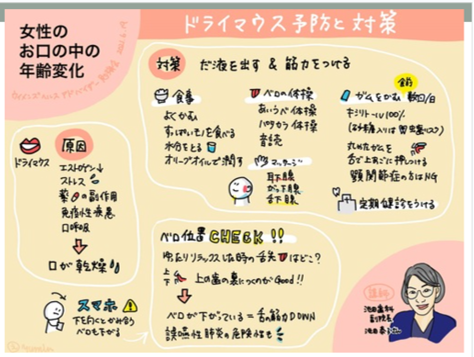 女性の
お口の中の
年齢変化
ドライマウス予防と対策
対策 だ液を出す & 筋力をつける
食事
よくかむ
すっぱいモノを食べる
水分をとる
オリーブオイルで潤す
ベロの体操
あいうべ体操
パタカラ体操
音読
マッサージ
耳下腺
がっ下腺
舌下腺
ガムをかむ 数回/日
キシリトール100%
丸めたガムを
舌で上あごに押しつける
顎関節症の方はNG
定期健診をうける
ドライマウス
原因
エストロゲン↓
ストレス
薬の副作用
免疫性疾患
口呼吸
口が乾燥!!
スマホ
下を向くとかみ合う
ベロも下がる
ベロ位置 CHECK!!
ゆったりリラックスした時の舌先はどこ?
上の歯の裏につくのがGood!!
ベロが下がっている=舌の筋力DOWN
誤嚥性肺炎の危険性も
講師
池田歯科
副院長